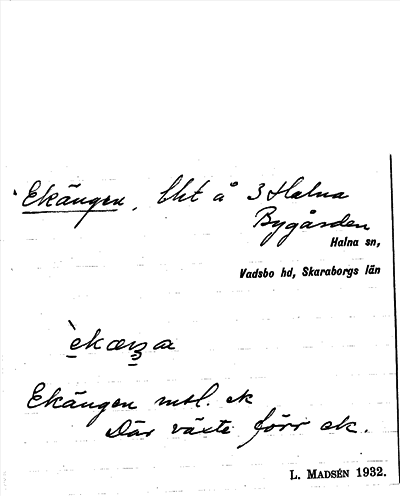 Ekängen, lht å 3 Halna
Bygården
Halna sn,
Vadsbo hd, Skaraborgs län
Ekängen msl. ek
Där växte förr ek.
L. MADSÉN 1932.